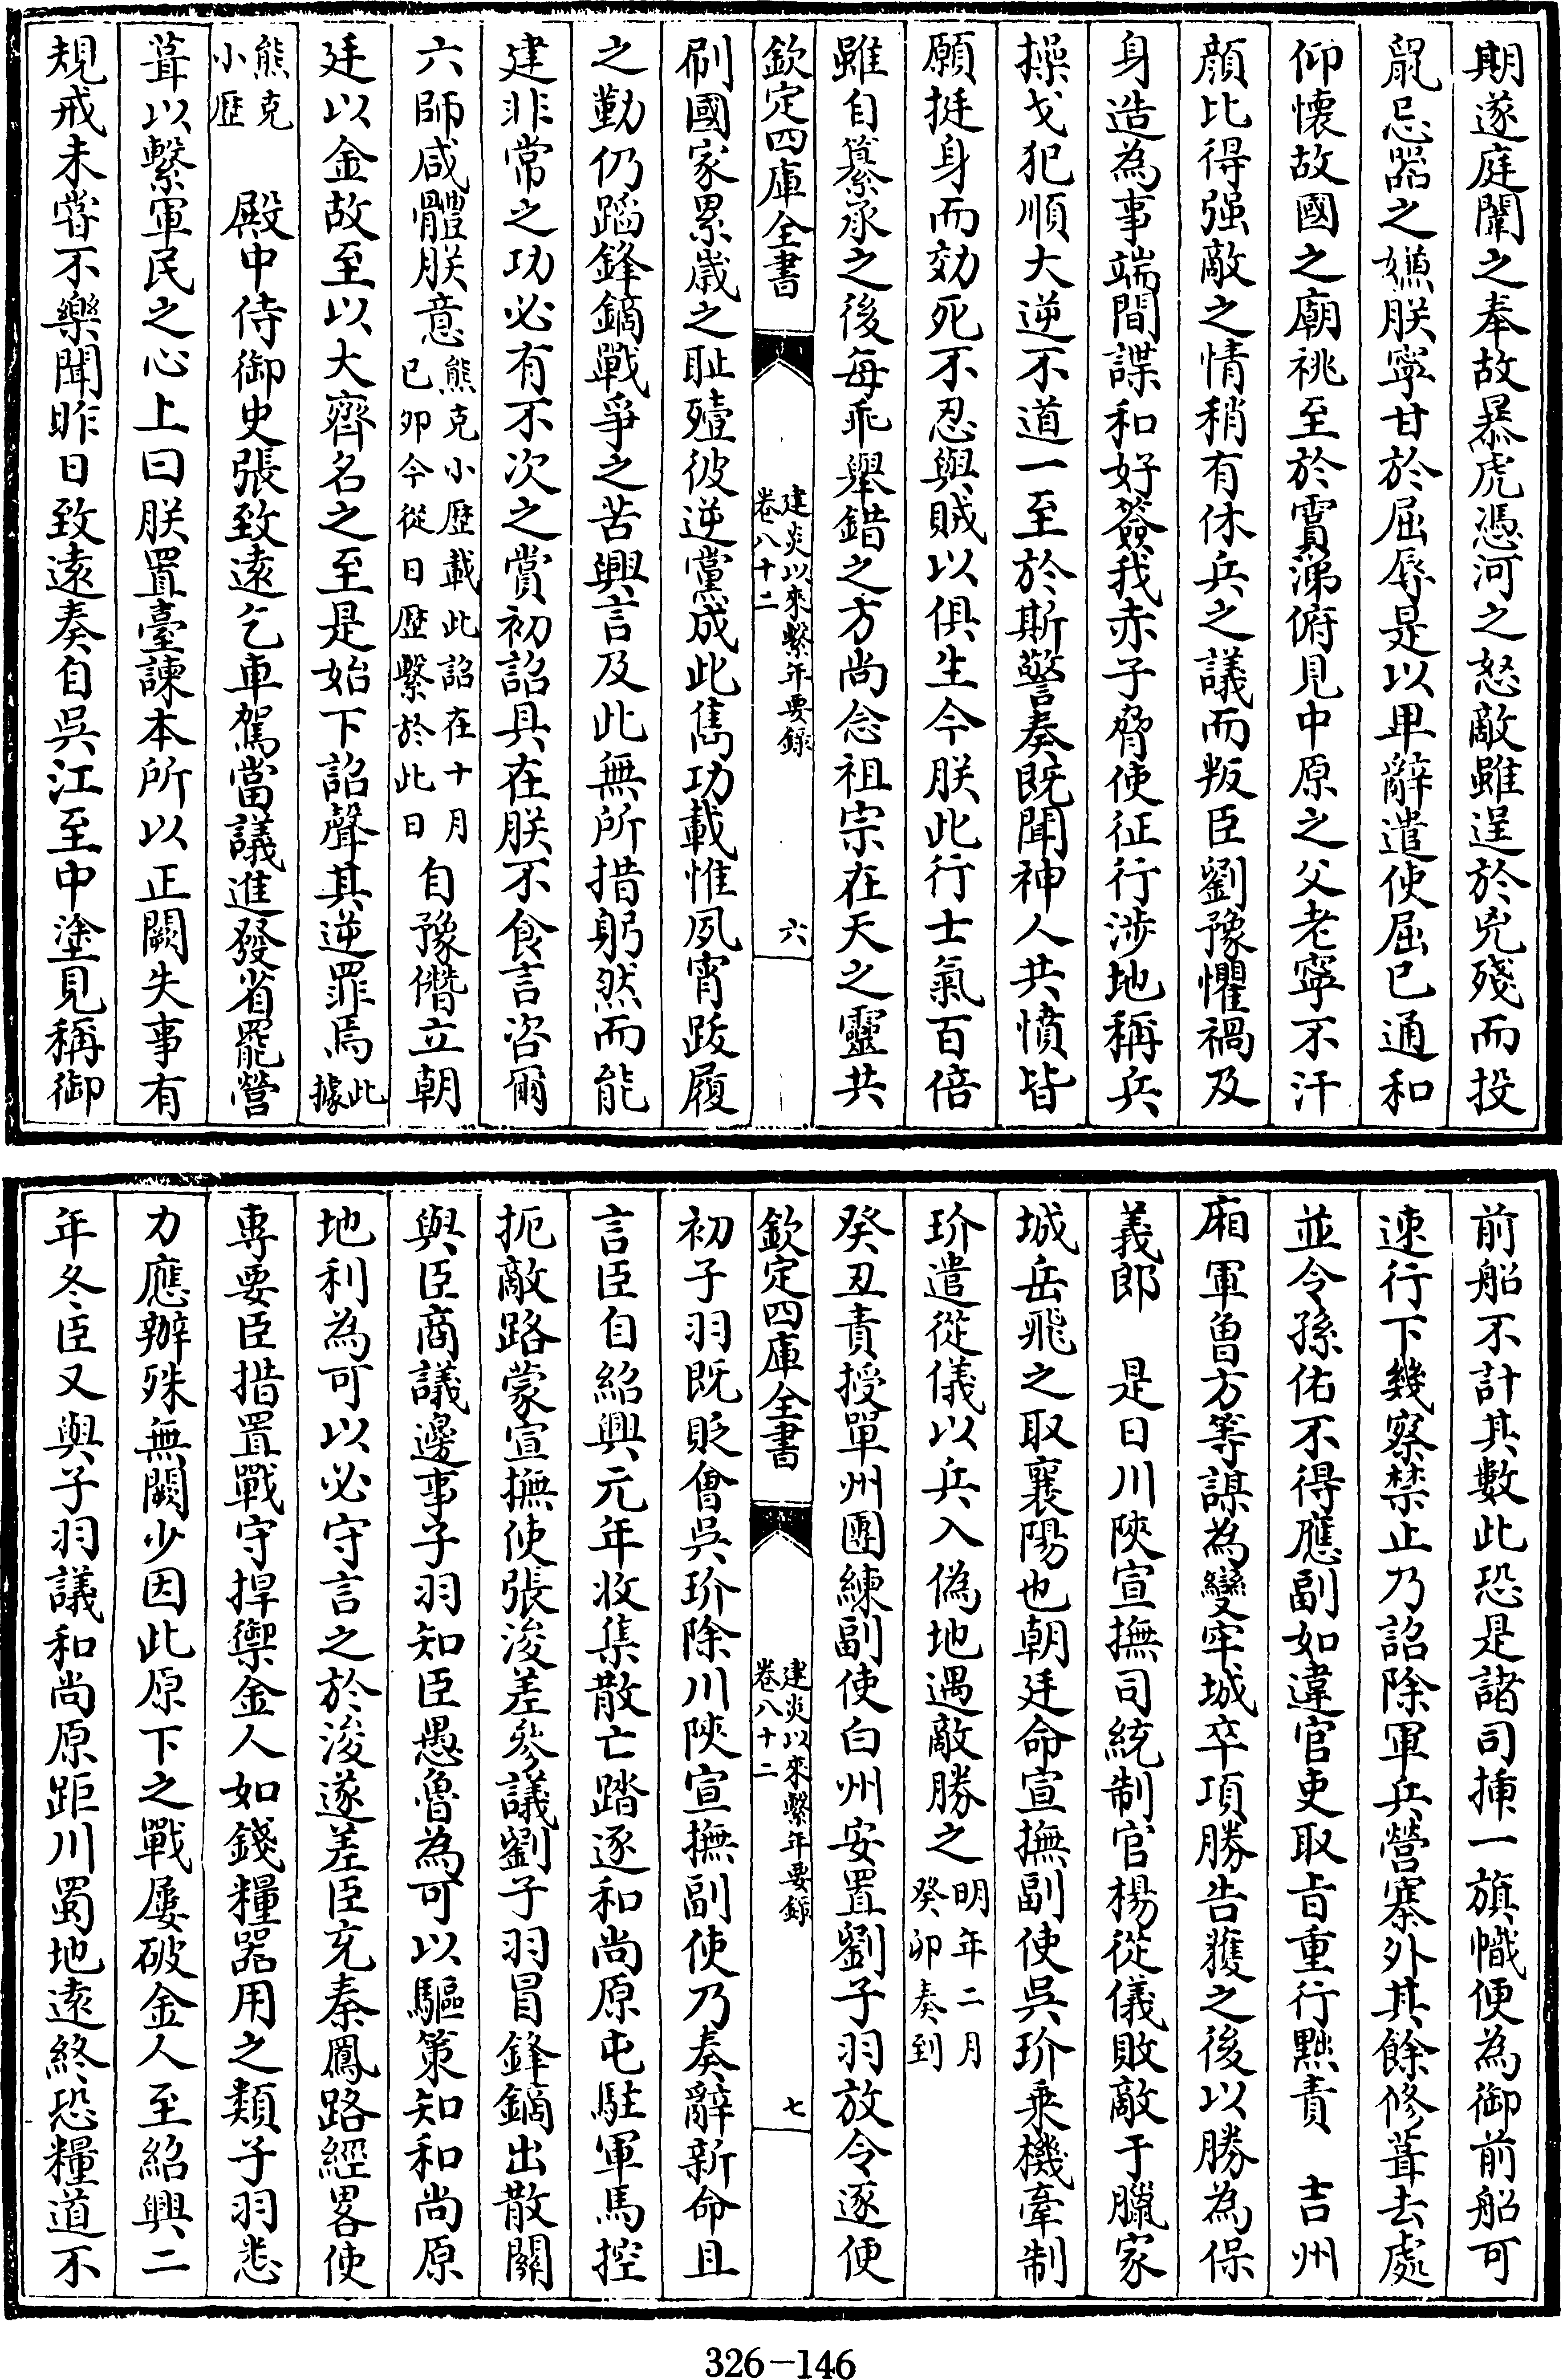 期遂庭闈之奉故暴虎憑河之怒敵雖逞於兇殘而投
鼠忌器之嫌朕寧甘於屈辱是以卑辭遣使屈已通和
仰懐故國之廟祧至於霣涕俯見中原之父老寧不汗
顔比得强敵之情稍有休兵之議而叛臣劉豫懼禍及
身造為事端間諜和好簽我赤子脅使征行涉地稱兵
操戈犯順大逆不道一至於斯警奏既聞神人共憤皆
願挺身而効死不忍與賊以俱生今朕此行士氣百倍
雖自纂承之後每乖舉錯之方尚念祖宗在天之靈共
欽定四庫全書
建炎以來繫年要録
卷八十二
六
刷國家累嵗之耻殪彼逆黨成此雋功載惟夙宵跋履
之勤仍蹈鋒鏑戰爭之苦興言及此無所措躬然而能
建非常之功必有不次之賞初詔具在朕不食言咨爾
六師咸體朕意熊克小歴載此詔在十月
已卯今從日歴繫於此日自豫僭立朝
廷以金故至以大齊名之至是始下詔聲其逆罪焉此
據
熊克
小歴　殿中侍御史張致遠乞車駕當議進發省罷營
葺以繫軍民之心上曰朕置臺諫本所以正闕失事有
規戒未嘗不樂聞昨日致遠奏自吳江至中塗見稱御
前船不計其數此恐是諸司揷一旗幟便為御前船可
速行下幾察禁止乃詔除軍兵營寨外其餘修葺去處
並令孫佑不得應副如違官吏取㫖重行黜責　吉州
廂軍曽方等謀為變牢城卒項勝告獲之後以勝為保
義郎　是日川陜宣撫司統制官楊從儀敗敵于臘家
城岳飛之取襄陽也朝廷命宣撫副使吳玠乗機牽制
玠遣從儀以兵入偽地遇敵勝之明年二月
癸卯奏到
癸丑責授單州團練副使白州安置劉子羽放令逐便
欽定四庫全書
建炎以來繫年要録
卷八十二
七
初子羽既貶會吳玠除川陜宣撫副使乃奏辭新命且
言臣自紹興元年收集散亡踏逐和尚原屯駐軍馬控
扼敵路蒙宣撫使張浚差參議劉子羽冒鋒鏑出散關
與臣商議邊事子羽知臣愚魯為可以驅策知和尚原
地利為可以必守言之於浚遂差臣充秦鳳路經畧使
專要臣措置戰守捍禦金人如錢糧器用之類子羽悉
力應辦殊無闕少因此原下之戰屢破金人至紹興二
年冬臣又與子羽議和尚原距川蜀地逺終恐糧道不
326-146